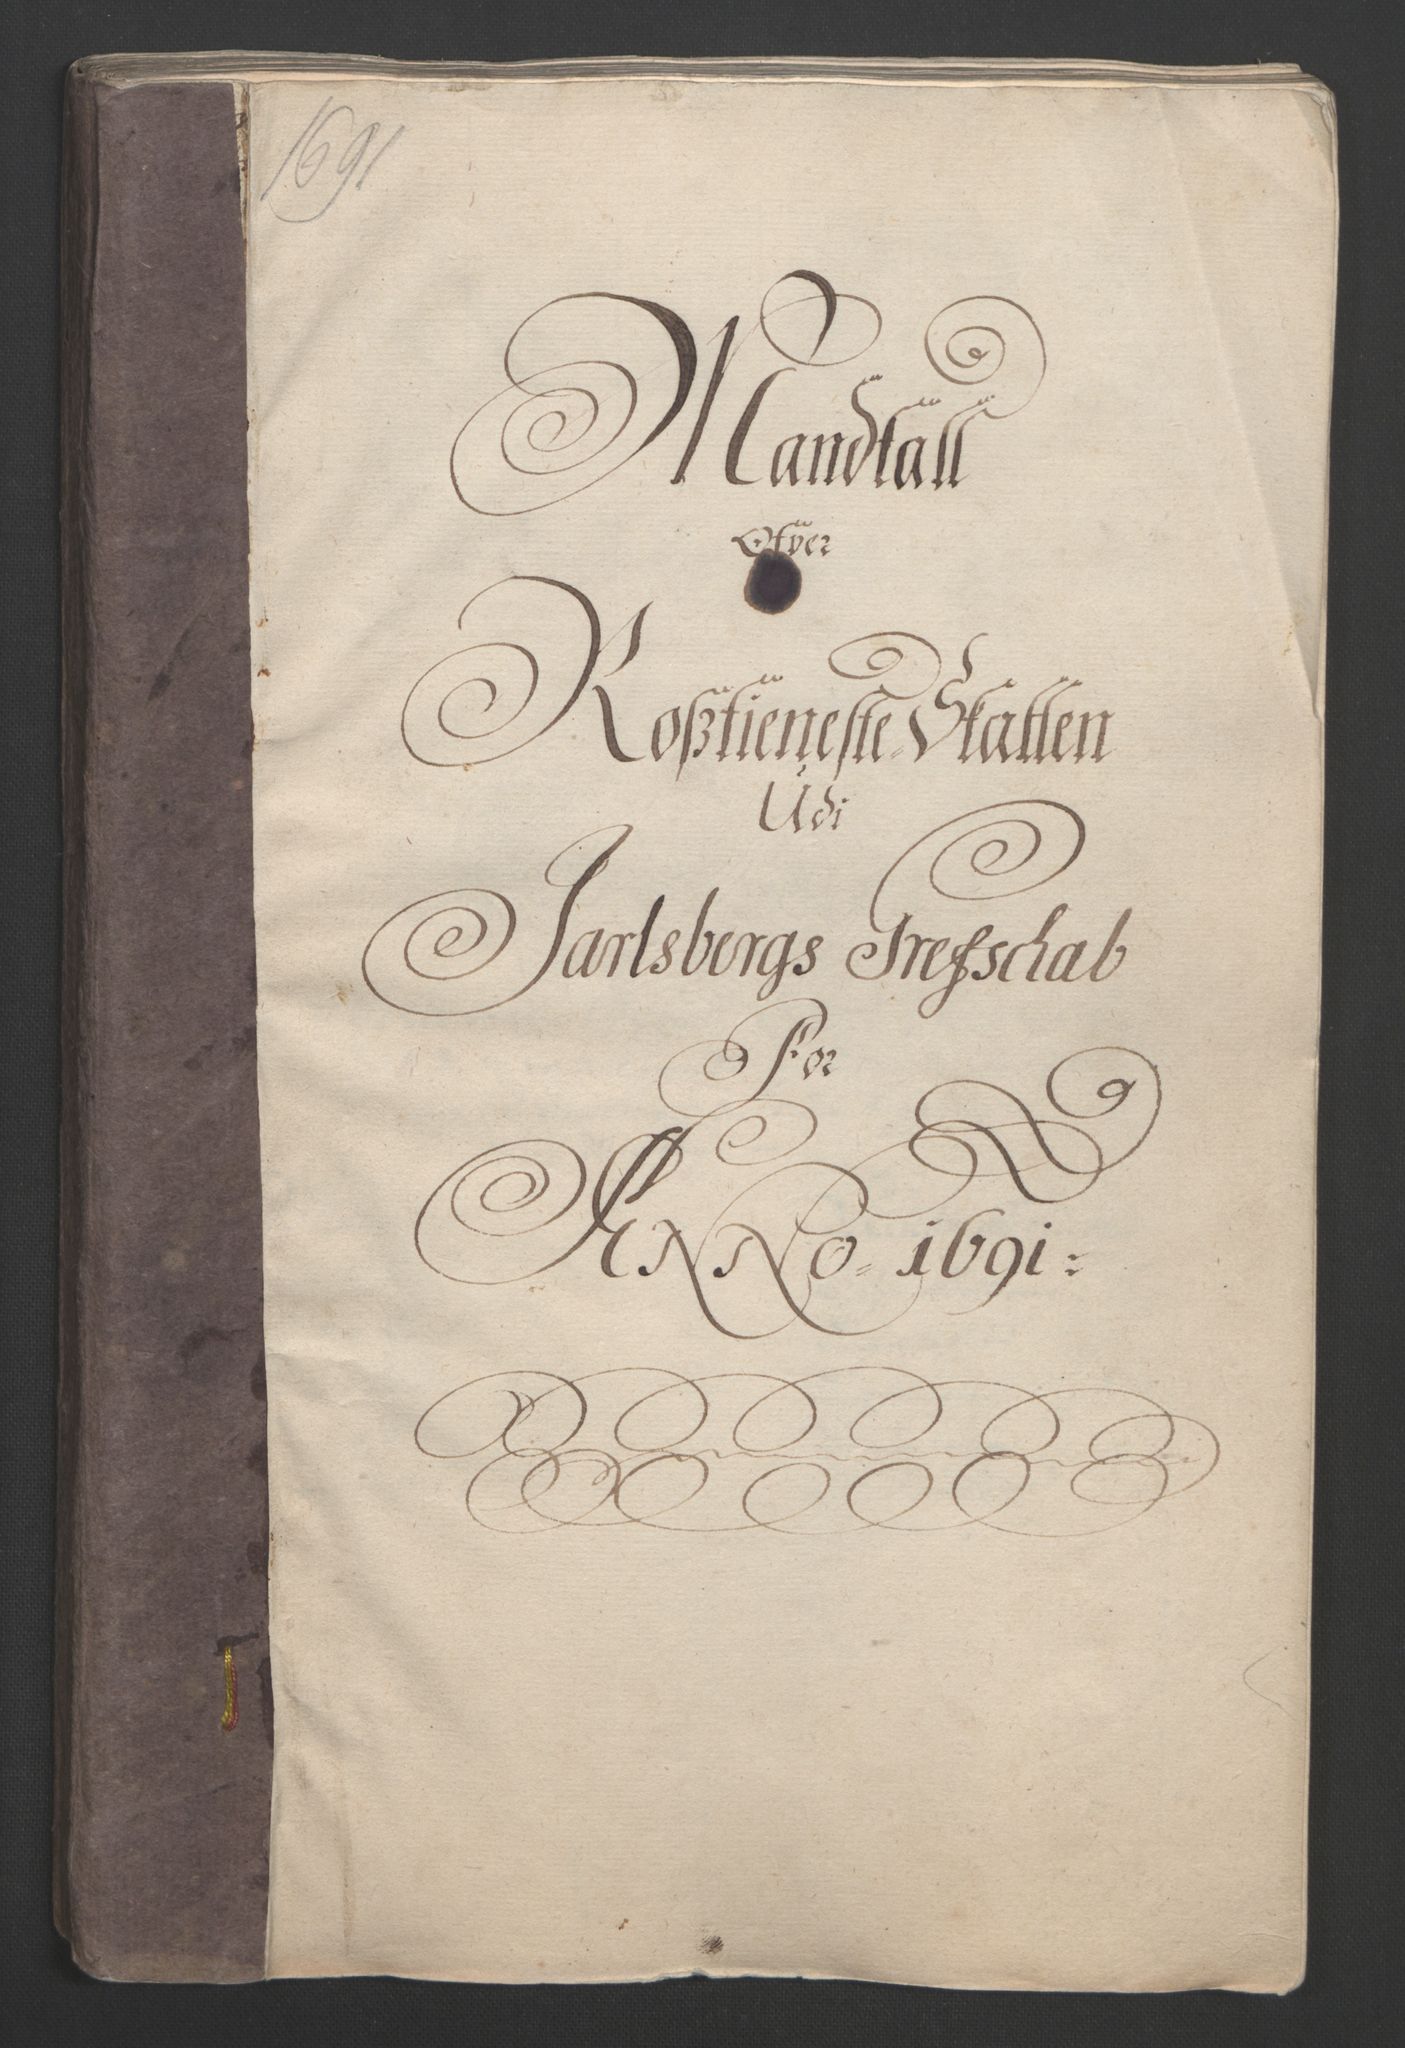 1691
Mandtall
Ofver
Roßtieneste-Skatten
Udi
Jarlsbergs Grefschab
For
ANNO = 1691 =